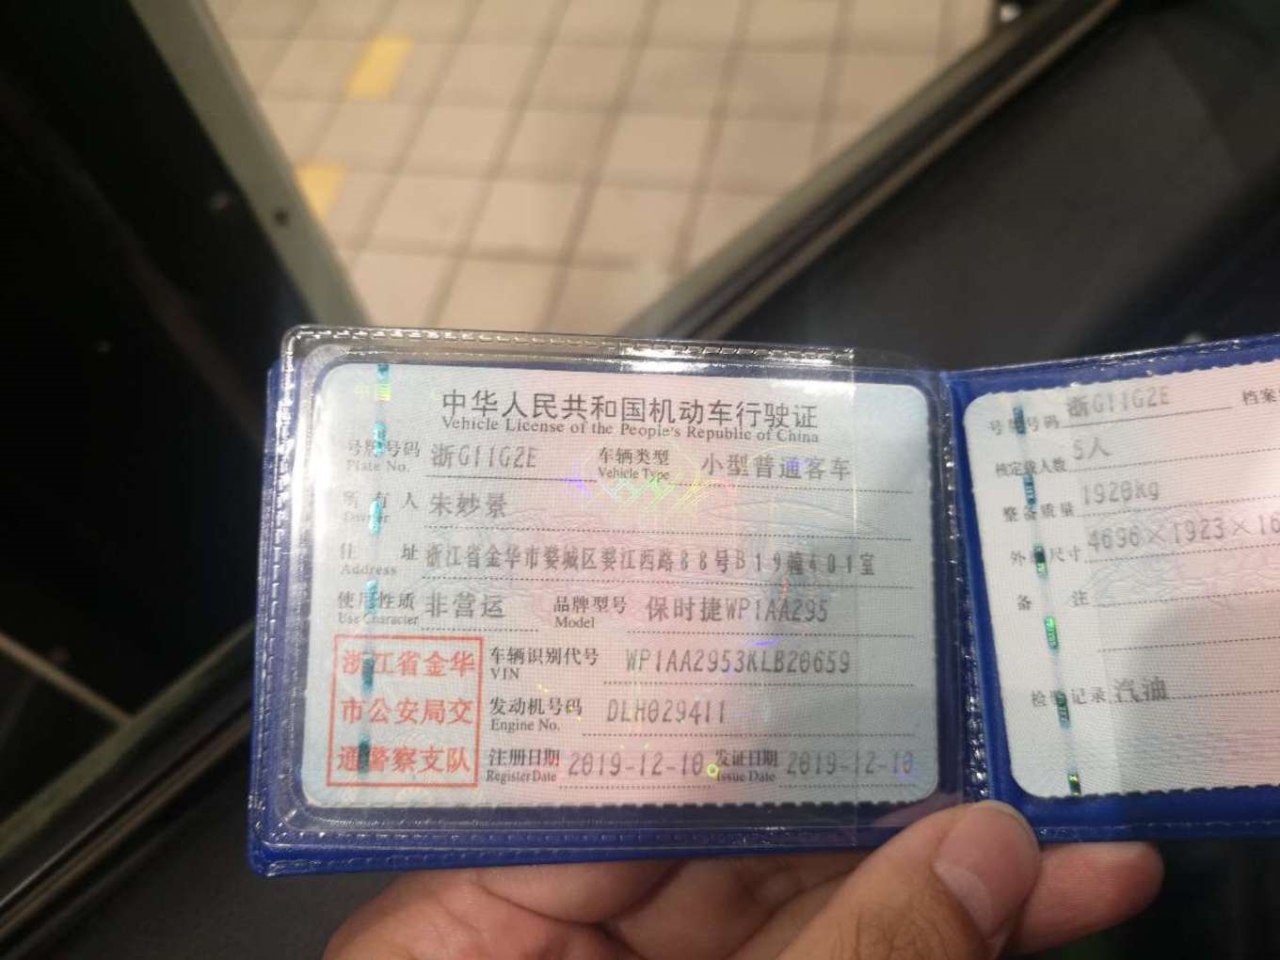 中国
中华人民共和国机动车行驶证
Vehicle License of the People's Republic of China
号牌号码 浙G11G2E 车辆类型 小型普通客车
Plate No. Vehicle Type
所有人 朱妙景
住址 浙江省金华市婺城区婺江西路88号B19幢401室
Address
使用性质 非营运 品牌型号 保时捷WP1AA295
Use Character Model
浙江省金华
市公安局交
通警察支队
车辆识别代号 WP1AA2953KLB20659
VIN
发动机号码 DLH029411
Engine No.
注册日期 2019-12-10 发证日期 2019-12-10
Register Date Issue Date
号牌号码 浙G11G2E 档案
核定载人数 5人
整备质量 1920kg
外廓尺寸 4696×1923×16
备注
检验记录 汽油